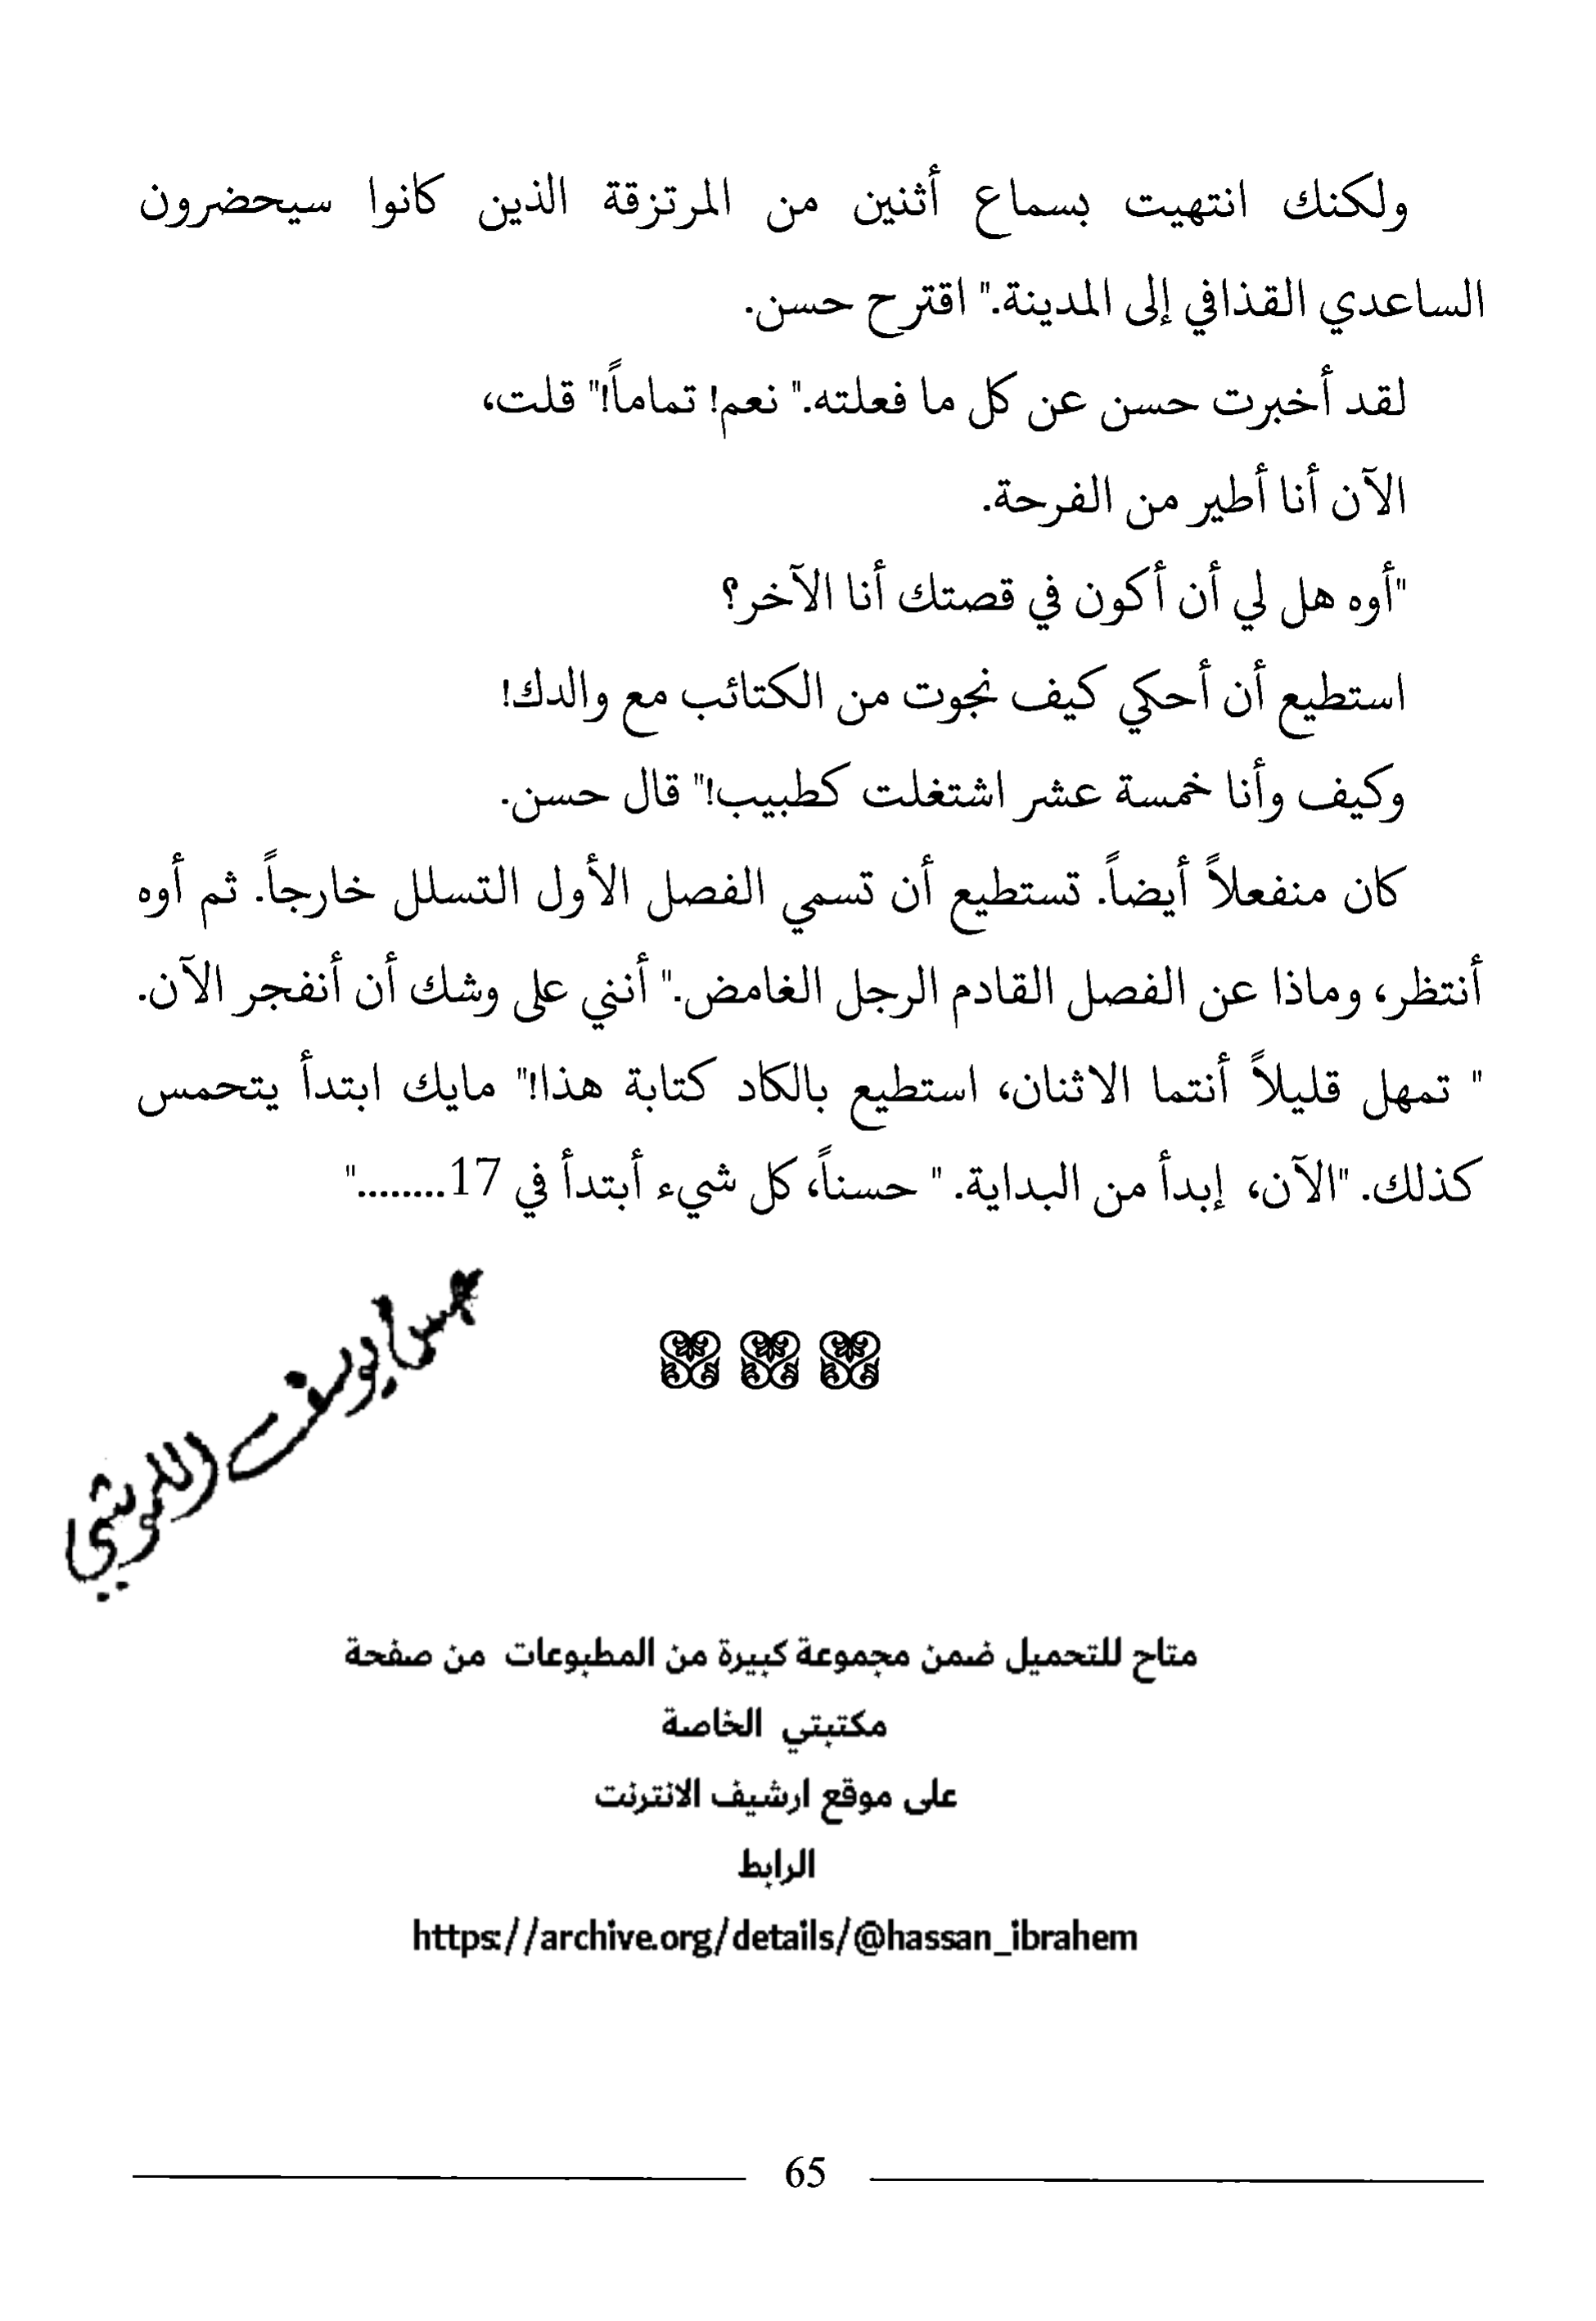 ولكنك انتهيت بسماع أثنين من المرتزقة الذين كانوا سيحضرون
الساعدي القذافي إلى المدينة." اقترح حسن.
لقد أخبرت حسن عن كل ما فعلته." نعم! تماماً!" قلت،
الآن أنا أطير من الفرحة.
"أوه هل لي أن أكون في قصتك أنا الآخر؟
استطيع أن أحكي كيف نجوت من الكتائب مع والدك!
وكيف وأنا خمسة عشر اشتغلت كطبيب!" قال حسن.
كان منفعلاً أيضاً. تستطيع أن تسمي الفصل الأول التسلل خارجاً. ثم أوه
أنتظر، وماذا عن الفصل القادم الرجل الغامض." أنني على وشك أن أنفجر الآن.
" تمهل قليلاً أنتما الاثنان، استطيع بالكاد كتابة هذا!" مايك ابتدأ يتحمس
كذلك. "الآن، إبدأ من البداية. " حسناً، كل شيء أبتدأ في 17........"
يوسف
متاح للتحميل ضمن مجموعة كبيرة من المطبوعات من صفحة
مكتبتي الخاصة
على موقع ارشيف الانترنت
الرابط
https://archive.org/details/@hassan_ibrahem
65